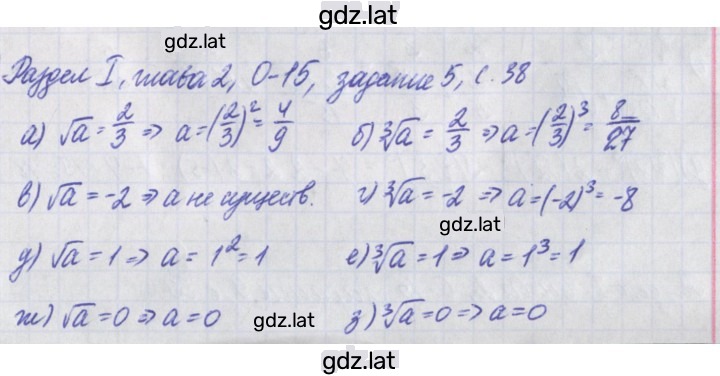 gdz.lat
gdz.lat
Раздел I, глава 2, О-15, задание 5, с. 38
а) √a = 2/3 => a = (2/3)² = 4/9 б) ∛a = 2/3 => a = (2/3)³ = 8/27
в) √a = -2 => a не существ. г) ∛a = -2 => a = (-2)³ = -8
gdz.lat
д) √a = 1 => a = 1² = 1 е) ∛a = 1 => a = 1³ = 1
ж) √a = 0 => a = 0 з) ∛a = 0 => a = 0
gdz.lat
gdz.lat